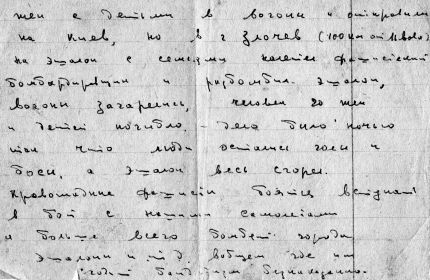 жен с детьми в вагоны и отправили
на Киев, но в г Злочев (100 км от Львова)
на эшалон с семьями налетели фашисткий
бомбардировщики и разбомбил. эшалон,
вагоны загорелись, человек 20 жен
и детей погибло. - дело было ночью
так что люди остались голы и
босы, а эшалон весь сгорел.
Кровожадные фашисты боятся вступать
в бой с нашими самолётами
а больше всего бомбят города
эшалоны и т.д. вобщем где ни